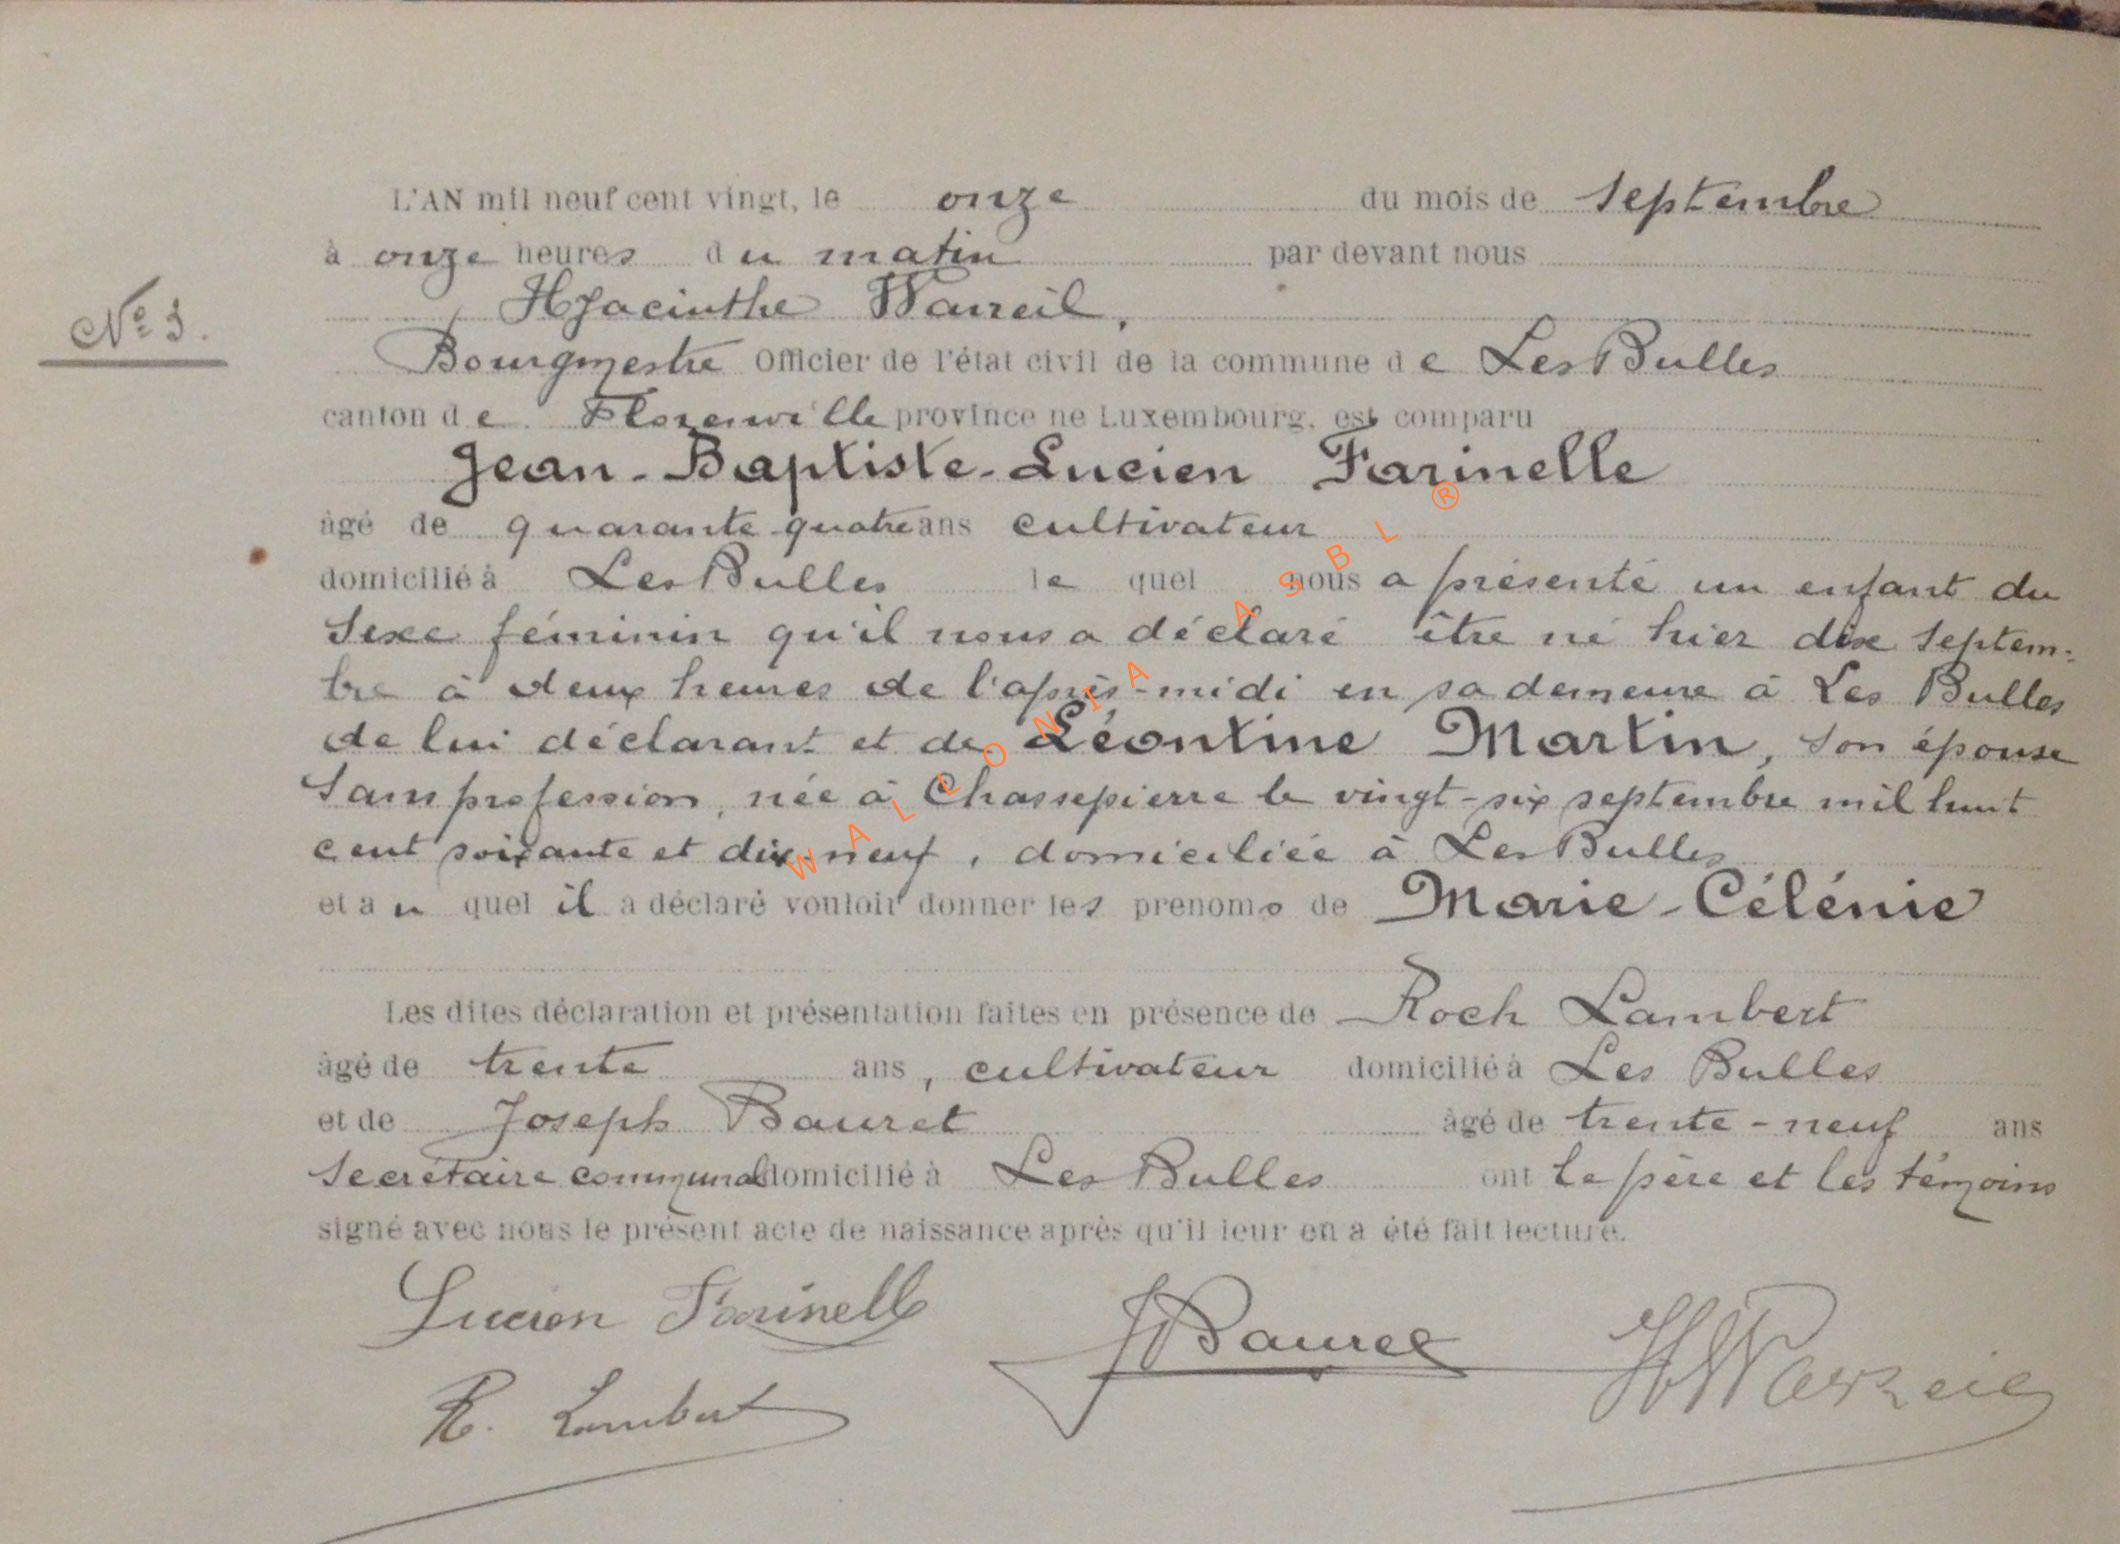 L'AN mil neuf cent vingt, le onze du mois de septembre
à onze heures du matin par devant nous
Nº 3.
Hyacinthe Warzeil,
Bourgmestre Officier de l'état civil de la commune de Les Bulles
canton de Florenville province de Luxembourg, est comparu
Jean-Baptiste-Lucien Farinelle
âgé de quarante quatre ans cultivateur
domicilié à Les Bulles lequel nous a présenté un enfant du
sexe féminin qu'il nous a déclaré être né hier dix septem-
bre à deux heures de l'après-midi en sa demeure à Les Bulles
de lui déclarant et de Léontine Martin, son épouse
sans profession, née à Chassepierre le vingt-six septembre mil huit
cent soixante et dix-neuf, domiciliée à Les Bulles
et au quel il a déclaré vouloir donner les prénoms de Marie-Célénie
Les dites déclaration et présentation faites en présence de Roch Lambert
âgé de trente ans, cultivateur domicilié à Les Bulles
et de Joseph Bauret âgé de trente-neuf ans
secrétaire communal domicilié à Les Bulles ont le père et les témoins
signé avec nous le présent acte de naissance après qu'il leur en a été fait lecture.
Lucien Farinelle
JBauret
HWarzeil
R. Lambert
WALLONIA ASBL ®